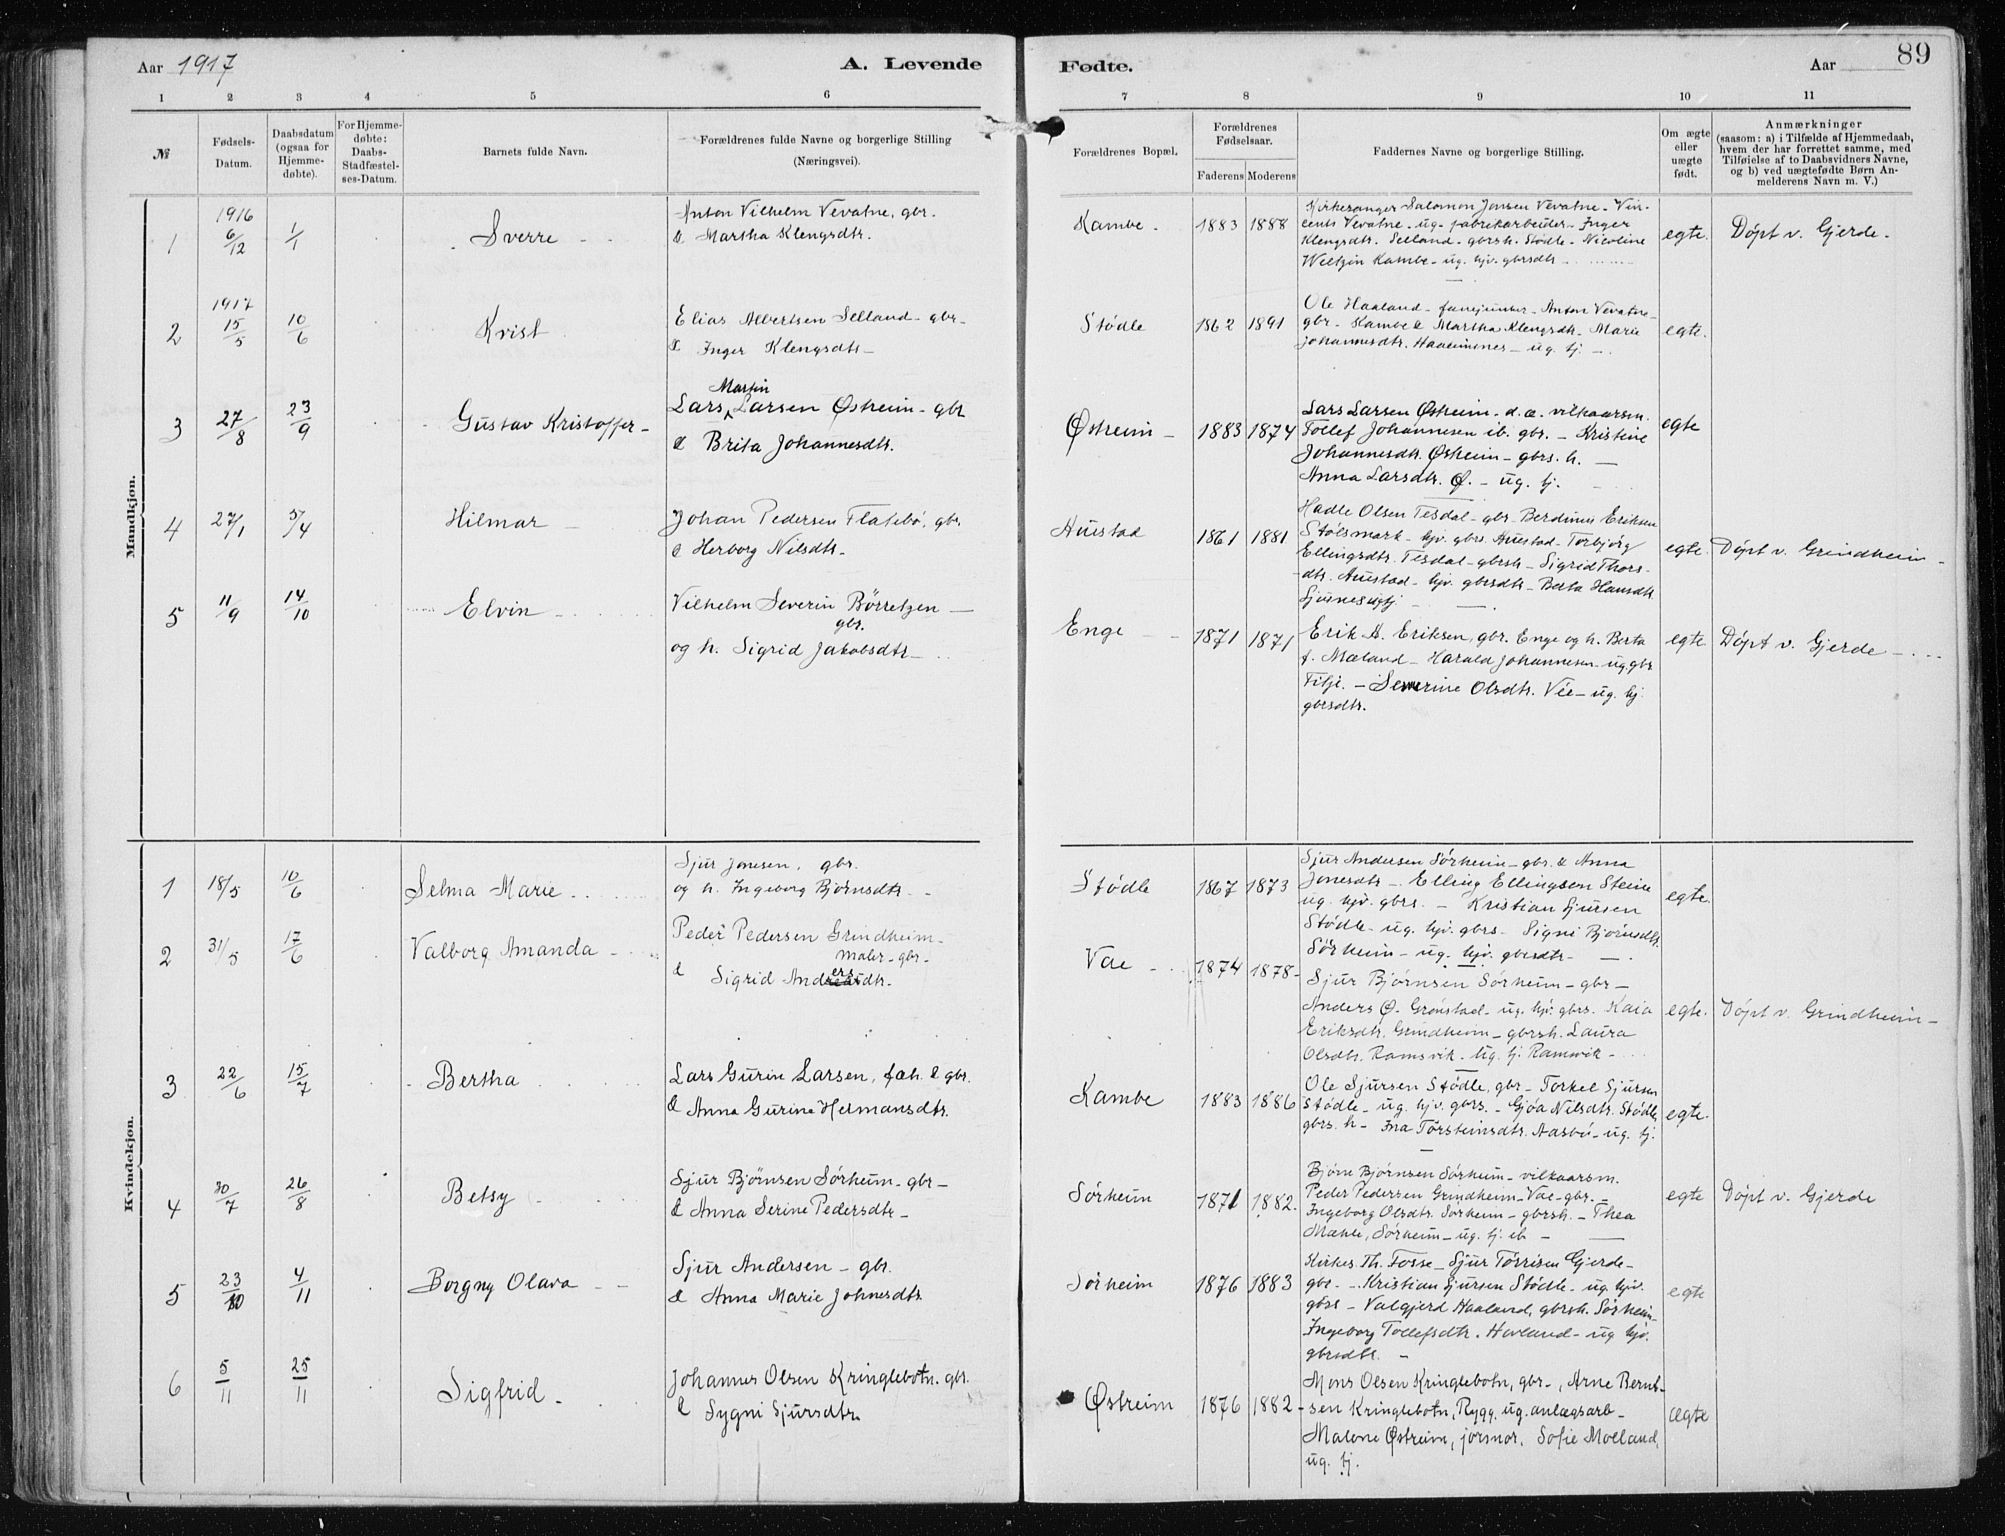 89
Aar 1917
A. Levende
Fødte.
Aar
1 2 3 4 5 6 7 8 9 10 11
№
Fødsels-
Datum.
Daabsdatum
(ogsaa for
Hjemme-
døbte).
For Hjemme-
døbte:
Daabs-
Stadfæstel-
ses-Datum.
Barnets fulde Navn.
Forældrenes fulde Navne og borgerlige Stilling
(Næringsvei).
Forældrenes Bopæl.
Forældrenes
Fødselsaar.
Faderens Moderens
Faddernes Navne og borgerlige Stilling.
Om ægte
eller
uægte
født.
Anmærkninger
(saasom: a) i Tilfælde af Hjemmedaab,
hvem der har forrettet samme, med
Tilføielse af to Daabsvidners Navne,
og b) ved uægtefødte Børn An-
melderens Navn m. V.)
Mandkjøn.
1
1916
6/12
1/1
Sverre
Anton Vilhelm Vevatne, gbr.
& Martha Klengsdtr.
Kambe.
1883 1888
Kirkesanger Salomon Jonsen Vevatne - Vin-
cents Vevatne - ug. fabrikarbeider - Inger
Klengsdtr. Selland - gbrsh. Stødle - Nicoline
Weltzin Kambe - ug. hjv. gbrsdtr
egte.
Döpt v. Gjerde.
2
1917
15/5
10/6
Krist
Elias Albertsen Selland - gbr -
& Inger Klengsdtr -
Stödle
1862 1891
Ole Haaland - fanejunker - Anton Vevatne -
gbr - Kambe & Martha Klengsdtr - Marie
Johannesdtr. - ug. tj -
egte.
3
27/8
23/9
Gustav Kristoffer -
Martin
Lars Larsen Østreim - gbr
& Brita Johannesdtr.
Østreim -
1883 1874
Lars Larsen Østreim - d.æ. vilkaarsm.
Tollef Johannesen ib. gbr. - Kristine
Johannesdtr. Østreim - gbrs. h. -
Anna Larsdtr. Ø. - ug. tj.
egte
4
27/1
5/4
Hilmar -
Johan Pedersen Flatebö, gbr.
& Herborg Nilsdtr -
Austad
1861 1881
Hadle Olsen Tesdal - gbr - Berdines Eriksen
Stölsmark - hjv. gbrs. Austad - Torbjörg
Ellingsdtr. Tesdal - gbrsh - Sigrid Thors-
dtr. Austad - hjv. gbrsdtr - Berta Hansdtr.
egte.
Döpt v. Grindheim -
5
11/9
14/10
Elvin
Vilhelm Severin Börretzen -
gbr.
og h. Sigrid Jakobsdtr -
Enge
1871 1871
Erik A. Eriksen, gbr. Enge og h. Berta
f. Mæland - Harald Johannesen - ug. gbr
Titje. - Severine Olsdtr. Vée - ug. hj.
gbrsdtr.
egte
Döpt v. Gjerde -
Kvindekjøn.
1
18/5
10/6
Selma Marie
Sjur Jonesen, gbr.
og h. Ingeborg Björnsdtr -
Stödle
1867 1873
Sjur Andersen Sörheim - gbr. & Anna
Jonesdtr - Elling Ellingsen Steine
ug. hjv. gbrs. - Kristian Sjursen
Stödle - ug. hjv. gbrs - Signi Björnsdtr.
Sörheim - ug. hjv. gbrsdtr -
egte.
2
31/5
17/6
Valborg Amanda -
Peder Pedersen Grindheim -
maler - gbr -
& Sigrid Andersdtr.
Vae
1874 1878 -
Sjur Bjørnsen Sørheim - gbr -
Anders Ø. Grönstad - ug. hjv. gbrs. Kaia
Eriksdtr. Grindheim - gbrsh. Laura
Olsdtr. Ramsvik - ug. tj. Ramsvik -
egte.
Döpt v. Grindheim -
3
22/6
15/7
Bertha
Lars Gurin Larsen, fæh. & gbr.
& Anna Gurine Hermansdtr.
Kambe
1883 1886
Ole Sjursen Stødle, gbr - Torkel Sjursen
Stødle - ug. hjv. gbrs. - Gjöa Nilsdtr. Stödle,
gbrs. h - Ina Torsteinsdtr. Aasbö - ug. tj.
egte.
4
30/7
26/8
Betsy
Sjur Bjørnsen Sörheim - gbr -
& Anna Serine Pedersdtr -
Sörheim
1871 1882.
Bjöne Björnsen Sörheim - vilkaarsm.
Peder Pedersen Grindheim - Vae - gbr. -
Ingeborg Olsdtr. Sörheim - gbrsh. - Thea
Mæhle, Sörheim - ug. tj. ib -
egte
Döpt v. Gjerde
5
23/10
4/11
Borgny Olava -
Sjur Andersen - gbr.
& Anna Marie Johnesdtr
Sörheim
1876 1883
Kirkes. Th. Fosse - Sjur Törrisen Gjerde -
gbr. - Kristian Sjursen Stödle - ug. hjv.
gbrs - Valgjerd Haaland, gbrsh. Sörheim -
Ingeborg Tollefsdtr. Hovland - ug hjv.
gbrsdtr. -
egte
6
5/11
25/11
Sigfrid -
Johannes Olsen Kringlebotn. gbr.
& Sygni Sjursdtr.
Østreim
1876 1882 -
Mons Olsen Kringlebotn, gbr -, Arne Bernt-
sen Kringlebotn, Rygg. ug. anlægsarb -
Malene Østreim, jorsmor, Sofie Moeland,
ug. tj.
ægte